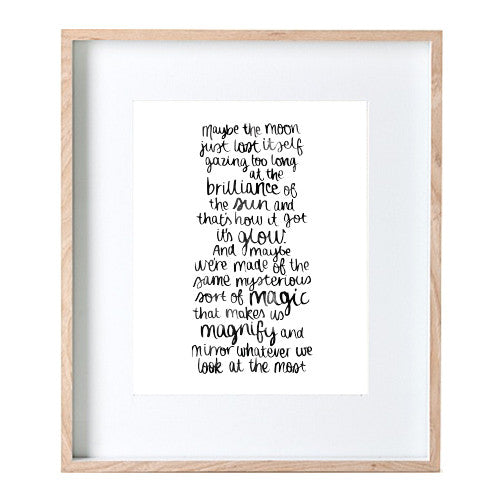 maybe the moon
just lost itself
gazing too long
at the
brilliance of
the sun and
that's how it got
it's glow.
And maybe
we're made of the
same mysterious
sort of magic
that makes us
magnify and
mirror whatever we
look at the most